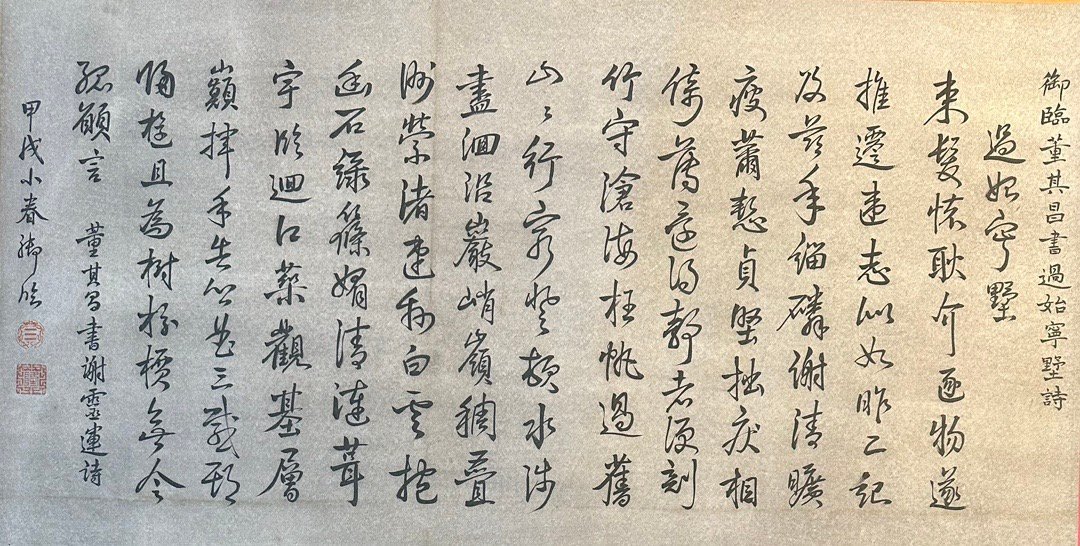 御臨董其昌書過始寧墅詩
過始寧墅
束髮懷耿介逐物遂
推遷違志似如昨二紀
及茲年緇磷謝清曠
疲蕭慙貞堅拙疾相
倚薄還得靜者便剖
竹守滄海枉帆過舊
山〻行窮登頓水涉
盡洄沿巖峭嶺稠疊
洲縈渚連綿白雲抱
幽石綠篠媚清漣葺
宇臨迴江築觀基層
巔揮手告鄉曲三載期
歸旋且為樹枌檟無令
孤願言 董其昌書謝靈運詩
甲戌小春御臨